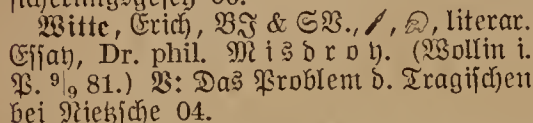 Witte, Erich, BJ & SV., literar.
Essay, Dr. phil. Misdroy. (Wollin i.
P. 9/9 81.) V: Das Problem d. Tragischen
bei Nietzsche 04.